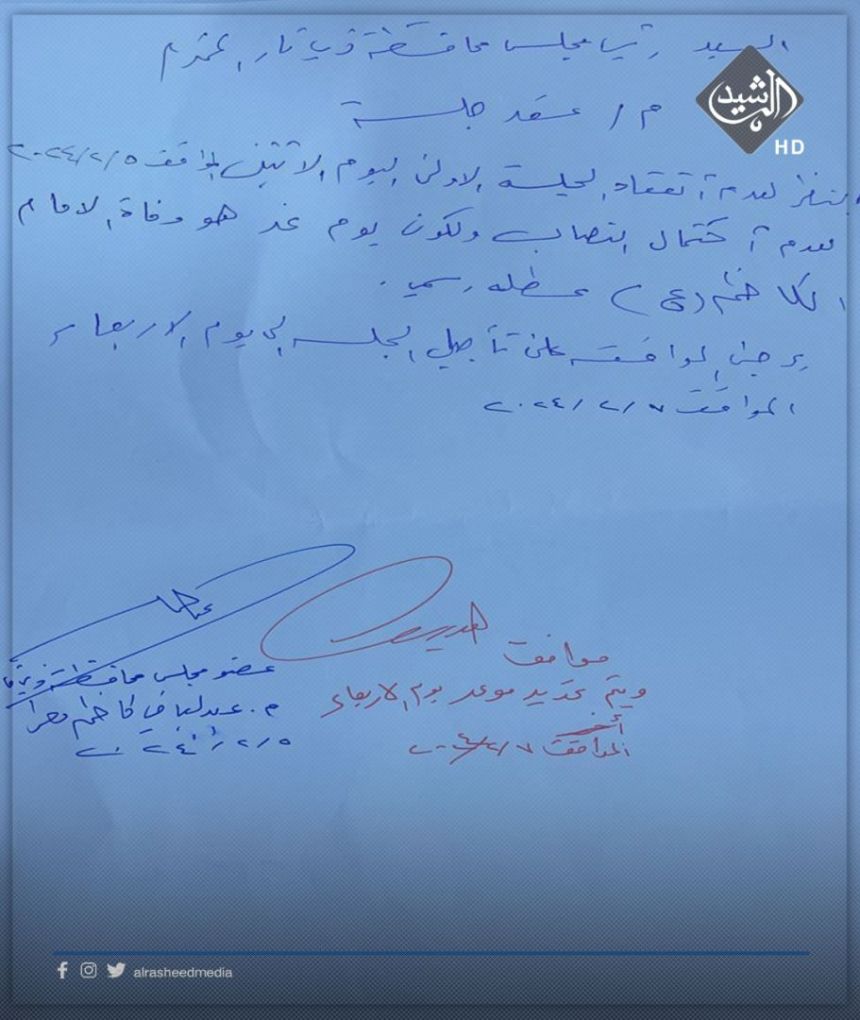 السيد رئيس مجلس محافظة ذي قار المحترم
م / عقد جلسة
الرشيد
HD
بنظر لعدم انعقاد الجلسة الاولى اليوم الاثنين الموافق ٢٠٢٤/٢/٥
لعدم اكتمال النصاب ولكون يوم غد هو وفاة الامام
الكاظم (ع) عطله رسمية .
يرجى الموافقة على تأجيل الجلسه الى يوم الاربعاء
الموافق ٢٠٢٤/٢/٧
موافق
ويتم تحديد موعد يوم الاربعاء
الموافق ٢٠٢٤/٢/٧
عضو مجلس محافظة ذي قار
م. عبدالباقي كاظم
٢٠٢٤/٢/٥
alrasheedmedia